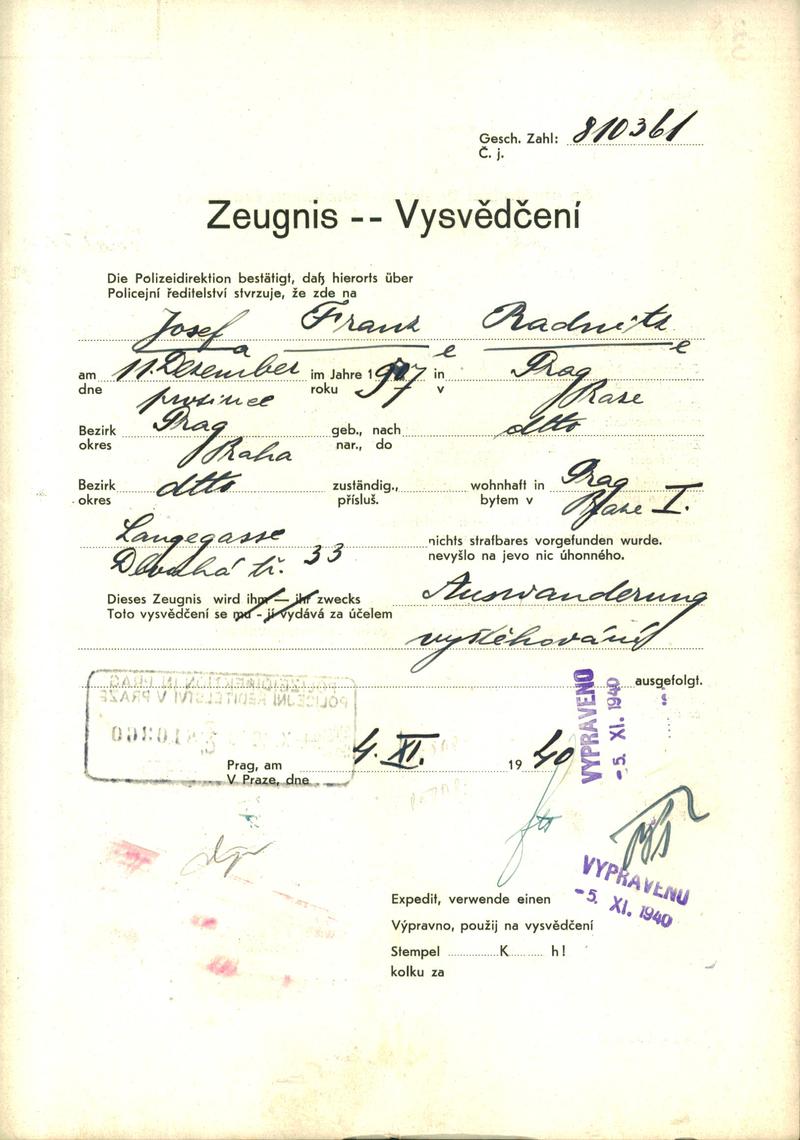 Gesch. Zahl: 810361
Č. j.
Zeugnis -- Vysvědčení
Die Polizeidirektion bestätigt, daß hierorts über
Policejní ředitelství stvrzuje, že zde na
Josef Franz Radnitz
a e e
am 11. Dezember im Jahre 1907 in Prag
dne prosince roku 7 v Praze
Bezirk Prag geb., nach dtto
okres Praha nar., do
Bezirk dtto zuständig., wohnhaft in Prag
okres přísluš. bytem v Praze I.
Langegasse nichts strafbares vorgefunden wurde.
Dlouhá tř. 33 nevyšlo na jevo nic úhonného.
Dieses Zeugnis wird ihm — ihr zwecks Auswanderung
Toto vysvědčení se mu - jí vydává za účelem
vystěhování
ausgefolgt.
POLIZEIDIREKTION IN PRAG
POLICEJNÍ ŘEDITELSTVÍ V PRAZE
VYPRAVENO
-5. XI. 1940
Prag, am 4. XI. 1940
V Praze, dne
VYPRAVENO
-5. XI. 1940
Expedit, verwende einen
Výpravno, použij na vysvědčení
Stempel K h!
kolku za